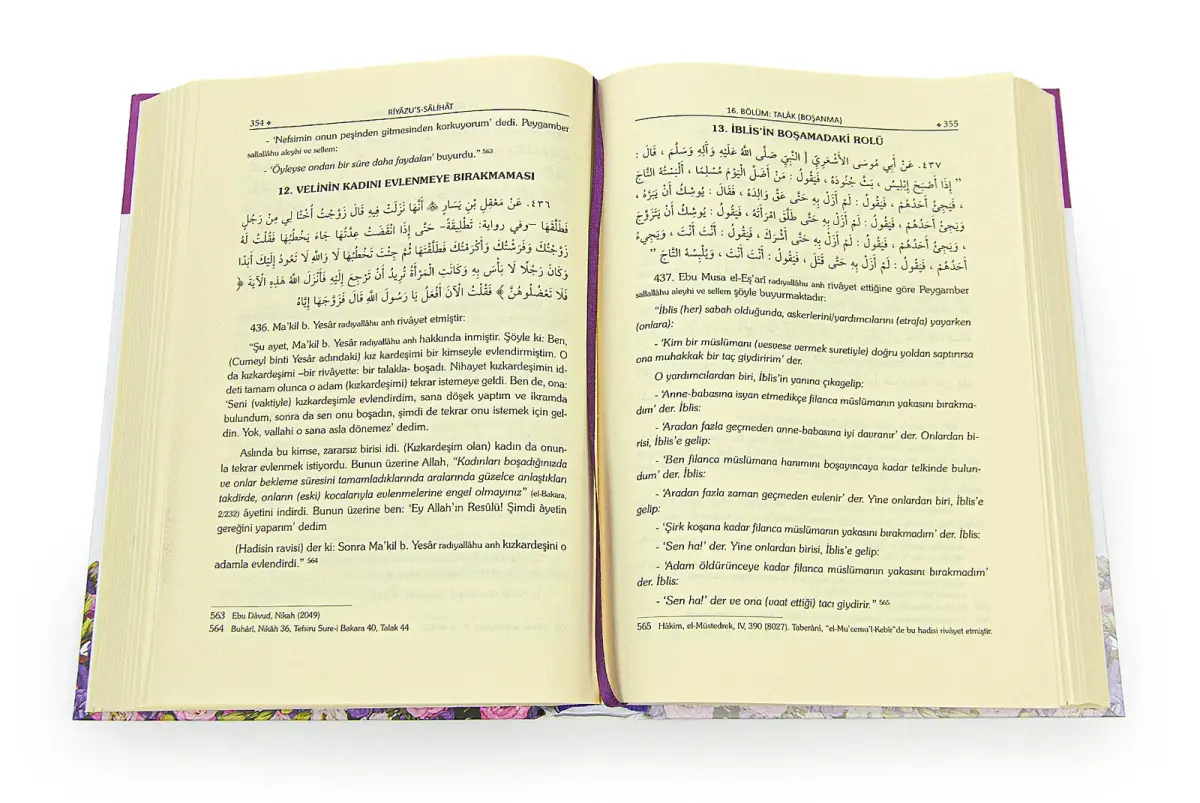 354 ◆ RİYÂZU'S-SÂLİHÂT
- 'Nefsimin onun peşinden gitmesinden korkuyorum' dedi. Peygamber
sallallâhu aleyhi ve sellem:
- 'Öyleyse ondan bir süre daha faydalan' buyurdu." 563
12. VELİNİN KADINI EVLENMEYE BIRAKMAMASI
٤٣٦. عَنْ مَعْقِلِ بْنِ يَسَارٍ ﵁ أَنَّهَا نَزَلَتْ فِيهِ قَالَ زَوَّجْتُ أُخْتًا لِي مِنْ رَجُلٍ
فَطَلَّقَهَا –وفي رواية: تَطْلِيقَةً- حَتَّى إِذَا انْقَضَتْ عِدَّتُهَا جَاءَ يَخْطُبُهَا فَقُلْتُ لَهُ
زَوَّجْتُكَ وَفَرَشْتُكَ وَأَكْرَمْتُكَ فَطَلَّقْتَهَا ثُمَّ جِئْتَ تَخْطُبُهَا لَا وَاللَّهِ لَا تَعُودُ إِلَيْكَ أَبَدًا
وَكَانَ رَجُلًا لَا بَأْسَ بِهِ وَكَانَتِ الْمَرْأَةُ تُرِيدُ أَنْ تَرْجِعَ إِلَيْهِ فَأَنْزَلَ اللَّهُ هَذِهِ الْآيَةَ ﴿
فَلَا تَعْضُلُوهُنَّ ﴾ فَقُلْتُ الْآنَ أَفْعَلُ يَا رَسُولَ اللَّهِ قَالَ فَزَوَّجَهَا إِيَّاهُ
436. Ma'kil b. Yesâr radıyallâhu anh rivâyet etmiştir:
"Şu ayet, Ma'kil b. Yesâr radıyallâhu anh hakkında inmiştir. Şöyle ki: Ben,
(Cumeyl binti Yesâr adındaki) kız kardeşimi bir kimseyle evlendirmiştim. O
da kızkardeşimi –bir rivâyette: bir talakla- boşadı. Nihayet kızkardeşimin id-
deti tamam olunca o adam (kızkardeşimi) tekrar istemeye geldi. Ben de, ona:
'Seni (vaktiyle) kızkardeşimle evlendirdim, sana döşek yaptım ve ikramda
bulundum, sonra da sen onu boşadın, şimdi de tekrar onu istemek için gel-
din. Yok, vallahi o sana asla dönemez' dedim.
Aslında bu kimse, zararsız birisi idi. (Kızkardeşim olan) kadın da onun-
la tekrar evlenmek istiyordu. Bunun üzerine Allah, "Kadınları boşadığınızda
ve onlar bekleme süresini tamamladıklarında aralarında güzelce anlaştıkları
takdirde, onların (eski) kocalarıyla evlenmelerine engel olmayınız" (el-Bakara,
2/232) âyetini indirdi. Bunun üzerine ben: 'Ey Allah'ın Resûlü! Şimdi âyetin
gereğini yaparım' dedim
(Hadisin ravisi) der ki: Sonra Ma'kil b. Yesâr radıyallahu anh kızkardeşini o
adamla evlendirdi." 564
563 Ebu Dâvud, Nikah (2049)
564 Buhârî, Nikâh 36, Tefsiru Sure-i Bakara 40, Talak 44
16. BÖLÜM: TALÂK (BOŞANMA) ◆ 355
13. İBLİS'İN BOŞAMADAKİ ROLÜ
٤٣٧. عَنْ أَبِي مُوسَى الأَشْعَرِيِّ [ النَّبِيّ صَلَّى اللَّهُ عَلَيْهِ وَآلِهِ وَسَلَّمَ ، قَالَ :
" إِذَا أَصْبَحَ إِبْلِيسُ ، بَثَّ جُنُودَهُ ، فَيَقُولُ : مَنْ أَضَلَّ الْيَوْمَ مُسْلِمًا ، أَلْبَسْتُهُ التَّاجَ
، فَيَجِيءُ أَحَدُهُمْ ، فَيَقُولُ : لَمْ أَزَلْ بِهِ حَتَّى عَقَّ وَالِدَهُ ، فَقَالَ : يُوشِكُ أَنْ يَبَرَّهُ ،
وَيَجِيءُ أَحَدُهُمْ ، فَيَقُولُ : لَمْ أَزَلْ بِهِ حَتَّى طَلَّقَ امْرَأَتَهُ ، فَيَقُولُ : يُوشِكُ أَنْ يَتَزَوَّجَ
، وَيَجِيءُ أَحَدُهُمْ ، فَيَقُولُ : لَمْ أَزَلْ بِهِ حَتَّى أَشْرَكَ ، فَيَقُولُ : أَنْتَ أَنْتَ ، وَيَجِيءُ
أَحَدُهُمْ ، فَيَقُولُ : لَمْ أَزَلْ بِهِ حَتَّى قَتَلَ ، فَيَقُولُ : أَنْتَ أَنْتَ ، وَيُلْبِسُهُ التَّاجَ "
437. Ebu Musa el-Eş'arî radıyallâhu anh rivâyet ettiğine göre Peygamber
sallallâhu aleyhi ve sellem şöyle buyurmaktadır:
"İblis (her) sabah olduğunda, askerlerini/yardımcılarını (etrafa) yayarken
(onlara):
- 'Kim bir müslümanı (vesvese vermek suretiyle) doğru yoldan saptırırsa
ona muhakkak bir taç giydiririm' der.
O yardımcılardan biri, İblis'in yanına çıkagelip:
- 'Anne-babasına isyan etmedikçe filanca müslümanın yakasını bırakma-
dım' der. İblis:
- 'Aradan fazla geçmeden anne-babasına iyi davranır' der. Onlardan bi-
risi, İblis'e gelip:
- 'Ben filanca müslümana hanımını boşayıncaya kadar telkinde bulun-
dum' der. İblis:
- 'Aradan fazla zaman geçmeden evlenir' der. Yine onlardan biri, İblis'e
gelip:
- 'Şirk koşana kadar filanca müslümanın yakasını bırakmadım' der. İblis:
- 'Sen ha!' der. Yine onlardan birisi, İblis'e gelip:
- 'Adam öldürünceye kadar filanca müslümanın yakasını bırakmadım'
der. İblis:
- 'Sen ha!' der ve ona (vaat ettiği) tacı giydirir." 565
565 Hâkim, el-Müstedrek, IV, 390 (8027). Taberânî, "el-Mu'cemu'l-Kebîr"de bu hadisi rivâyet etmiştir.